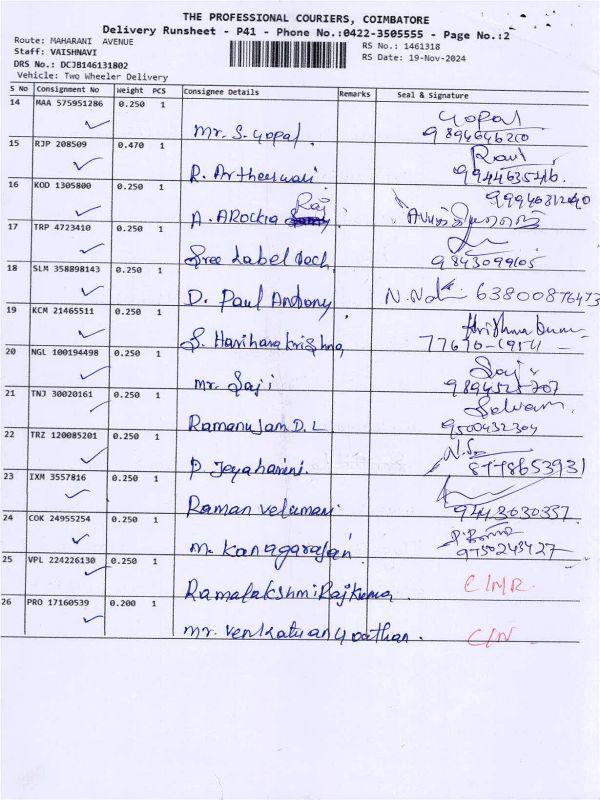 THE PROFESSIONAL COURIERS, COIMBATORE
Delivery Runsheet - P41 - Phone No.:0422-3505555 - Page No.:2
Route: MAHARANI AVENUE
RS No.: 1461318
Staff: VAISHNAVI
RS Date: 19-Nov-2024
DRS No.: DCJB146131802
Vehicle: Two Wheeler Delivery
S No Consignment No Weight PCS Consignee Details Remarks Seal & Signature
14 MAA 575951286 0.250 1 Gopal
✓ Mr. S. Gopal. 9894646210
15 RJP 208509 0.470 1
✓ R. Artheeswari
16 KOD 1305800 0.250 1
✓ A. Arockia Raj
17 TRP 4723410 0.250 1
✓ Sree Label Tech 9843099605
18 SLM 358898143 0.250 1
✓ D. Paul Antony 63800876473
19 KCM 21465511 0.250 1
✓ S. Hariharakrishna
20 NGL 100194498 0.250 1 Saji
✓ Mr. Saji
21 TNJ 30020161 0.250 1 Selvam.
✓ Ramanujam D. L 9500432304
22 TRZ 120085201 0.250 1
✓ P. Jeyaharini 8778653931
23 IXM 3557816 0.250 1
✓ Raman Velumani 9443030337
24 COK 24955254 0.250 1
✓ M. Kanagarajan 9750243427
25 VPL 224226130 0.250 1
✓ Ramalakshmi Rajkumar
26 PRO 17160539 0.200 1
✓ Mr. C/N